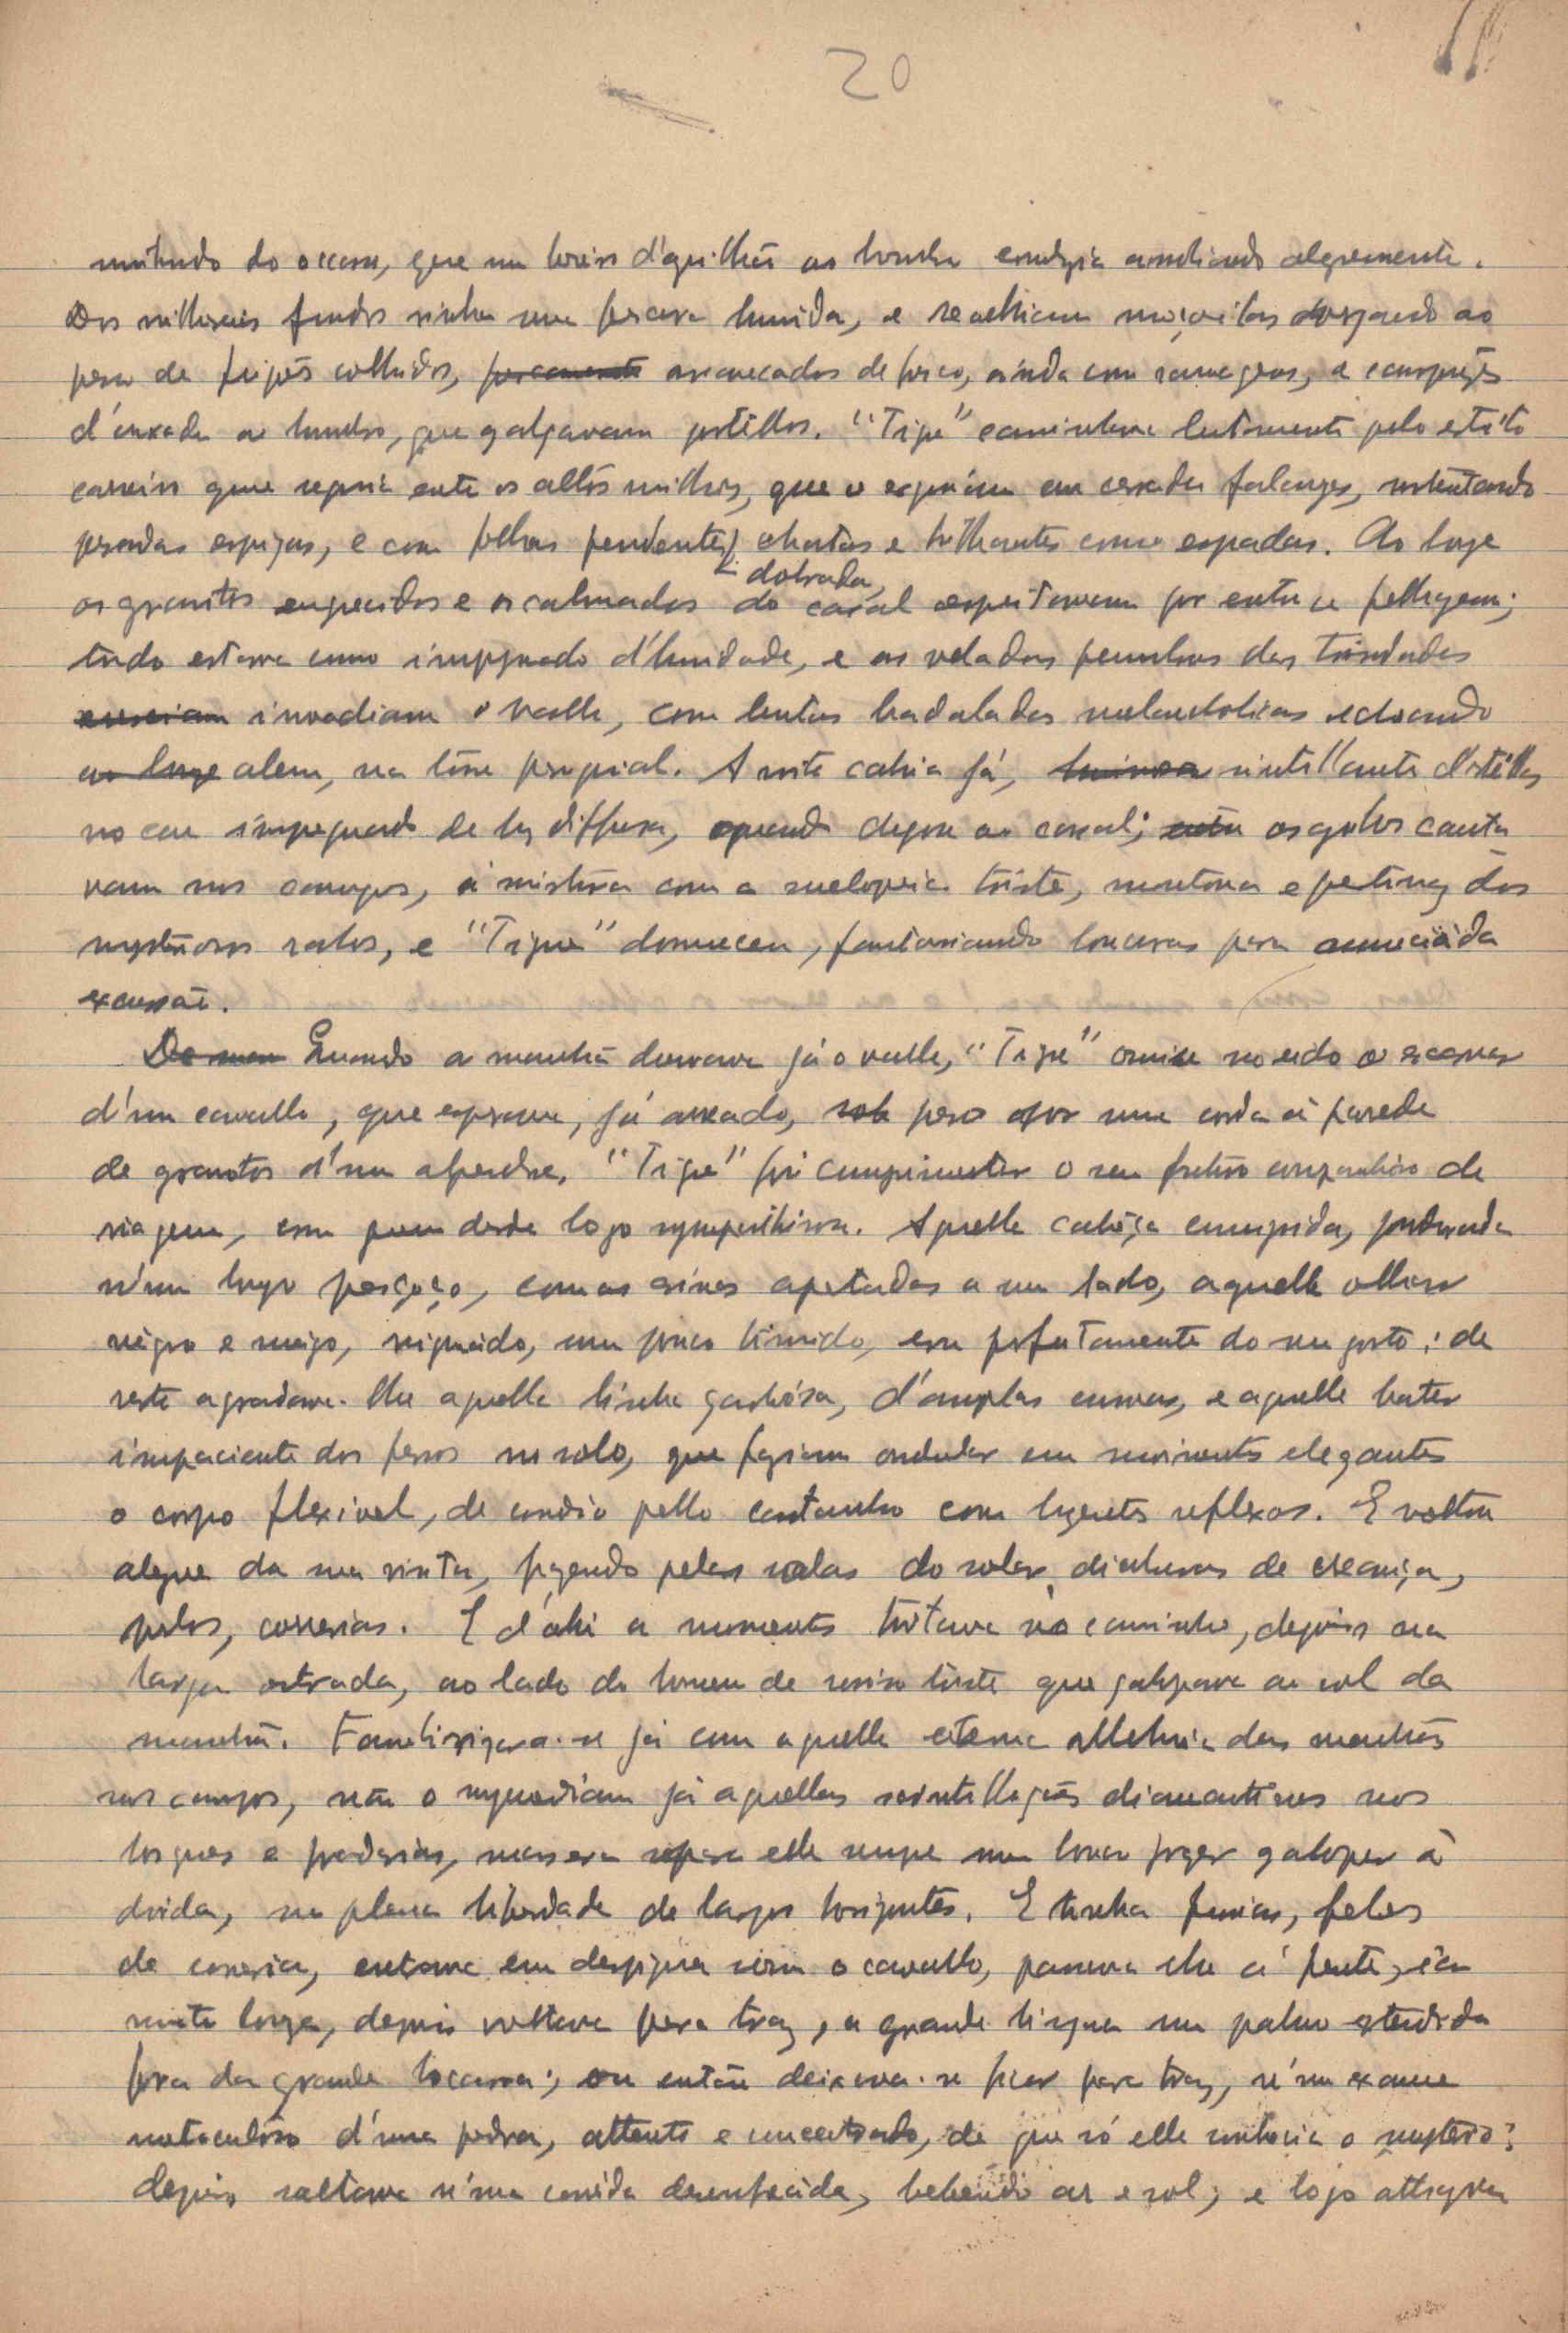 20
do occaso, que um d'aguilhão ao hombro conduzia alegremente.
Dos milharaes fundos vinha uma humida, e recolhiam ao
peso de feijões colhidos, arrancados de fresco, ainda com ramagens, e
d'enxada ao hombro, que galgavam portellos. "Tigre" caminhava lentamente pelo estreito
carreiro que seguia entre os altos milhos, que o em cerradas falanges, sustentando
pesadas espigas, e com folhas pendentes, e brilhantes como espadas. Ao longe
dobrada,
os granitos e os do casal espreitavam por entre a folhagem;
tudo estava como impregnado d'humidade, e as veladas penumbras das trindades
invadiam o valle, com lentas badaladas melancholicas echoando
ao longe alem, na torre parochial. A noite cahia já, scintillante d'estrellas
no ceu impregnado de luz diffusa, quando chegou ao casal; os galos canta
vam nos campos, á mistura com a melopeia triste, monotona e pertinaz dos
mysteriosos ralos, e "Tigre" adormeceu, fantasiando loucuras para a annunciada
excursão.
Quando a manhã dourava já o valle, "Tigre" ouviu no eido o escarvar
d'um cavallo, que esperava, já arreado, preso por uma corda á parede
de granitos d'um alpendre. "Tigre" foi cumprimentar o seu futuro companheiro de
viagem, com quem desde logo sympathisou. Aquella cabeça comprida, pendurada
n'um longo pescoço, com as crinas apartadas a um lado, aquelle olhar
negro e meigo, um pouco timido, era perfeitamente do seu gosto; de
resto agradava-lhe aquella linha garbósa, d'amplas curvas, e aquelle bater
impaciente dos ferros no solo, que faziam ondular em movimentos elegantes
o corpo flexivel, de pello castanho com reflexos. E voltou
alegre da sua visita, fazendo pelas salas do solar, diabruras de creança,
pulos, correrias. E d'ahi a momentos trotava no caminho, depois na
larga estrada, ao lado do homem de sorriso triste que galopava ao sol da
manhã. Familiarizara-se já com aquella eterna alleluia das manhãs
nos campos, não o surprehendiam já aquellas scintillações diamantinas nos
bosques e pradarias, mas era para elle sempre um louco prazer galopar á
doida, na plena liberdade de largos horizontes. E tinha furias, febres
de correria, entrava em despique com o cavallo, passava-lhe á frente, ia
muito longe, depois voltava para traz, a grande lingua um palmo estendida
fora da grande bocarra; ou então deixava-se ficar para traz, n'um exame
meticuloso d'uma pedra, attento e concentrado, de que só elle conhecia o mysterio;
depois saltava n'uma corrida desenfreada, bebendo ar e sol, e logo